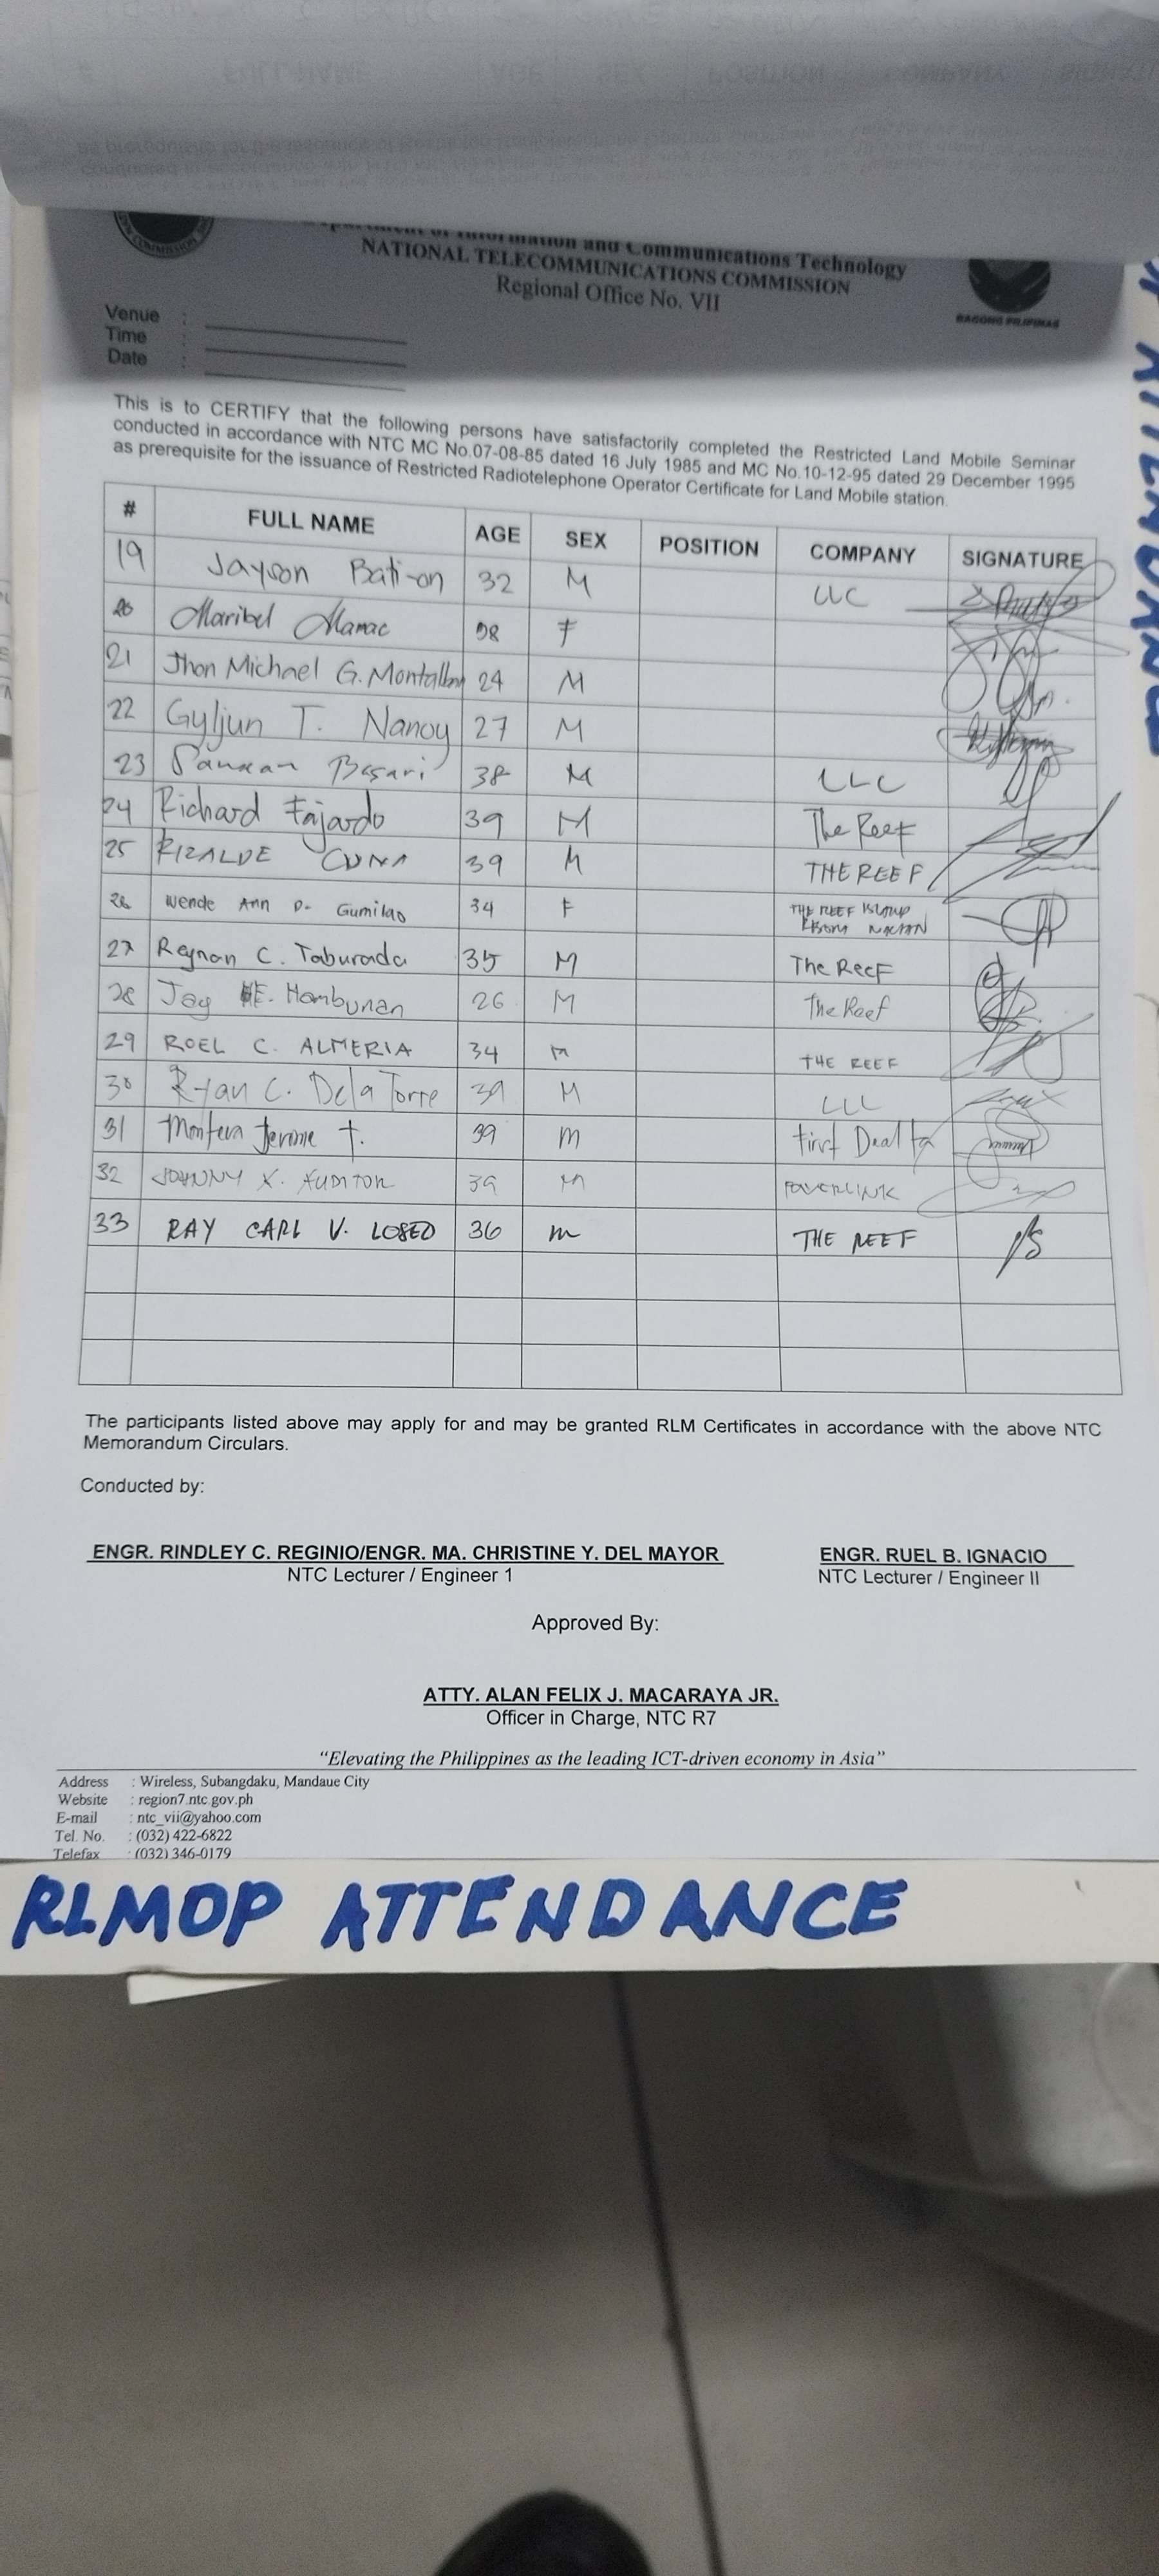 Department of Information and Communications Technology
NATIONAL TELECOMMUNICATIONS COMMISSION
Regional Office No. VII
COMMISSION
BAGONG PILIPINAS
Venue :
Time :
Date :
This is to CERTIFY that the following persons have satisfactorily completed the Restricted Land Mobile Seminar
conducted in accordance with NTC MC No.07-08-85 dated 16 July 1985 and MC No.10-12-95 dated 29 December 1995
as prerequisite for the issuance of Restricted Radiotelephone Operator Certificate for Land Mobile station.
# FULL NAME AGE SEX POSITION COMPANY SIGNATURE
19 Jayson Bati-on 32 M
20 Maribel Manac F
21 Jhon Michael G. Montalban 24 M
22 Gyljun T. Nanoy 27 M
23 Basari 38 M LLC
24 Richard Fajardo 39 M The Reef
25 RIZALDE CUNA 39 M THE REEF
26 Wende Ann D. Gumilao 34 F THE REEF ISLAND
27 Reynan C. Taburada 35 M The Reef
28 Jay E. Hambunan 26 M The Reef
29 ROEL C. ALMERIA 34 M THE REEF
30 Ryan C. Dela Torre 39 M
31 Jerome T. 39 m First Deal
32 JOHNNY X. 39 M POWERLINK
33 RAY CARL V. LOSEO 36 m THE REEF
The participants listed above may apply for and may be granted RLM Certificates in accordance with the above NTC
Memorandum Circulars.
Conducted by:
ENGR. RINDLEY C. REGINIO/ENGR. MA. CHRISTINE Y. DEL MAYOR ENGR. RUEL B. IGNACIO
NTC Lecturer / Engineer 1 NTC Lecturer / Engineer II
Approved By:
ATTY. ALAN FELIX J. MACARAYA JR.
Officer in Charge, NTC R7
“Elevating the Philippines as the leading ICT-driven economy in Asia”
Address : Wireless, Subangdaku, Mandaue City
Website : region7.ntc.gov.ph
E-mail : ntc_vii@yahoo.com
Tel. No. : (032) 422-6822
Telefax : (032) 346-0179
RLMOP ATTENDANCE